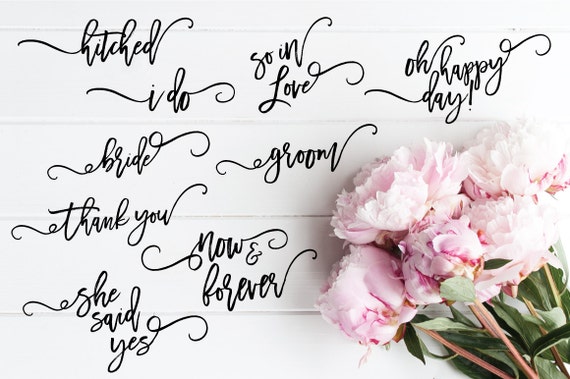 hitched
i do
so in
Love
oh happy
day!
bride
groom
thank you
now &
forever
she
said
yes